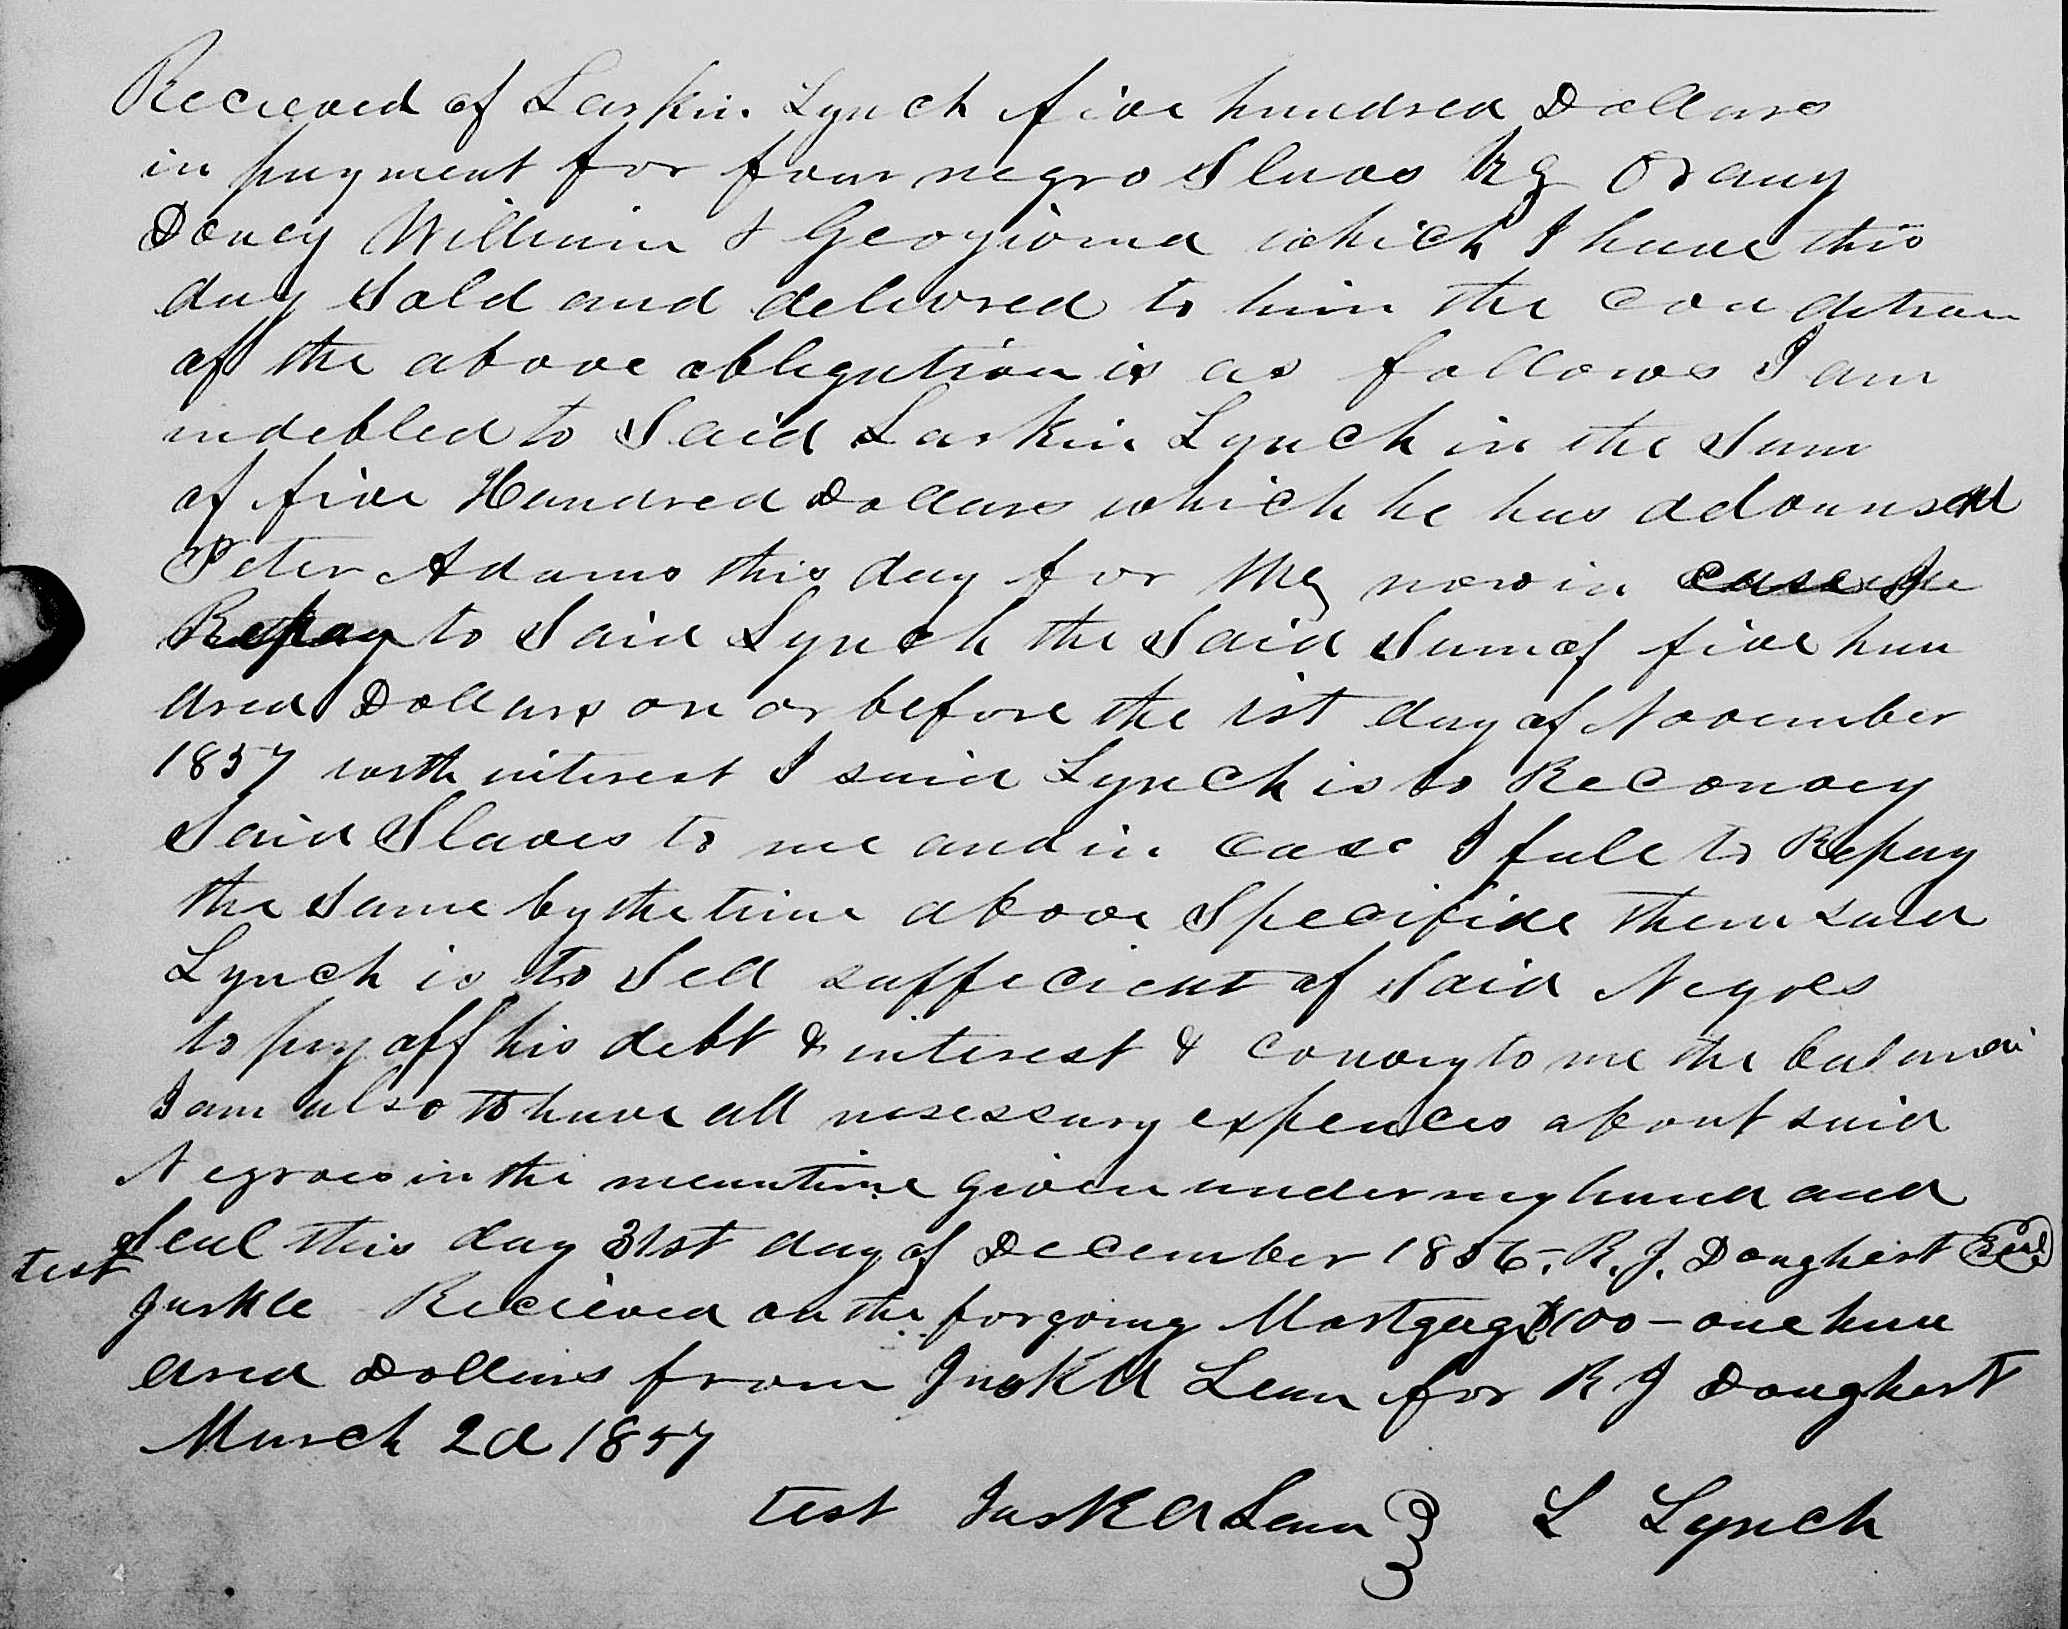 Recieved of Larkin Lynch five hundred Dollars
in payment for four negro Slaves
Dovey William & Georgiona which I have this
day Sold and delivred to him the condition
of the above obligation is as follows I am
indebted to Said Larkin Lynch in the Sum
of five Hundred Dollars which he has advansed
Peter Adams this day for me now in case I
Repay to Said Lynch the Said Sum of five hun
dred Dollars on or before the 1st day of November
1857 with interest I said Lynch is to Reconvey
Said Slaves to me and in case I fale to Repay
the Same by the time above Specifide then said
Lynch is to Sell sufficient of Said Negroes
to pay off his debt & interest & convey to me the
I am also to have all nesessary expences about said
Negroes in the meantime given under my hand and
Seal this day 31st day of December 1856. R. J. Doughert Seal
test
Recieved on the forgoing Mortgage $100 - one hun
dred Dollars from Lenn for R J Doughert
March 2d 1857
test Lenn L Lynch